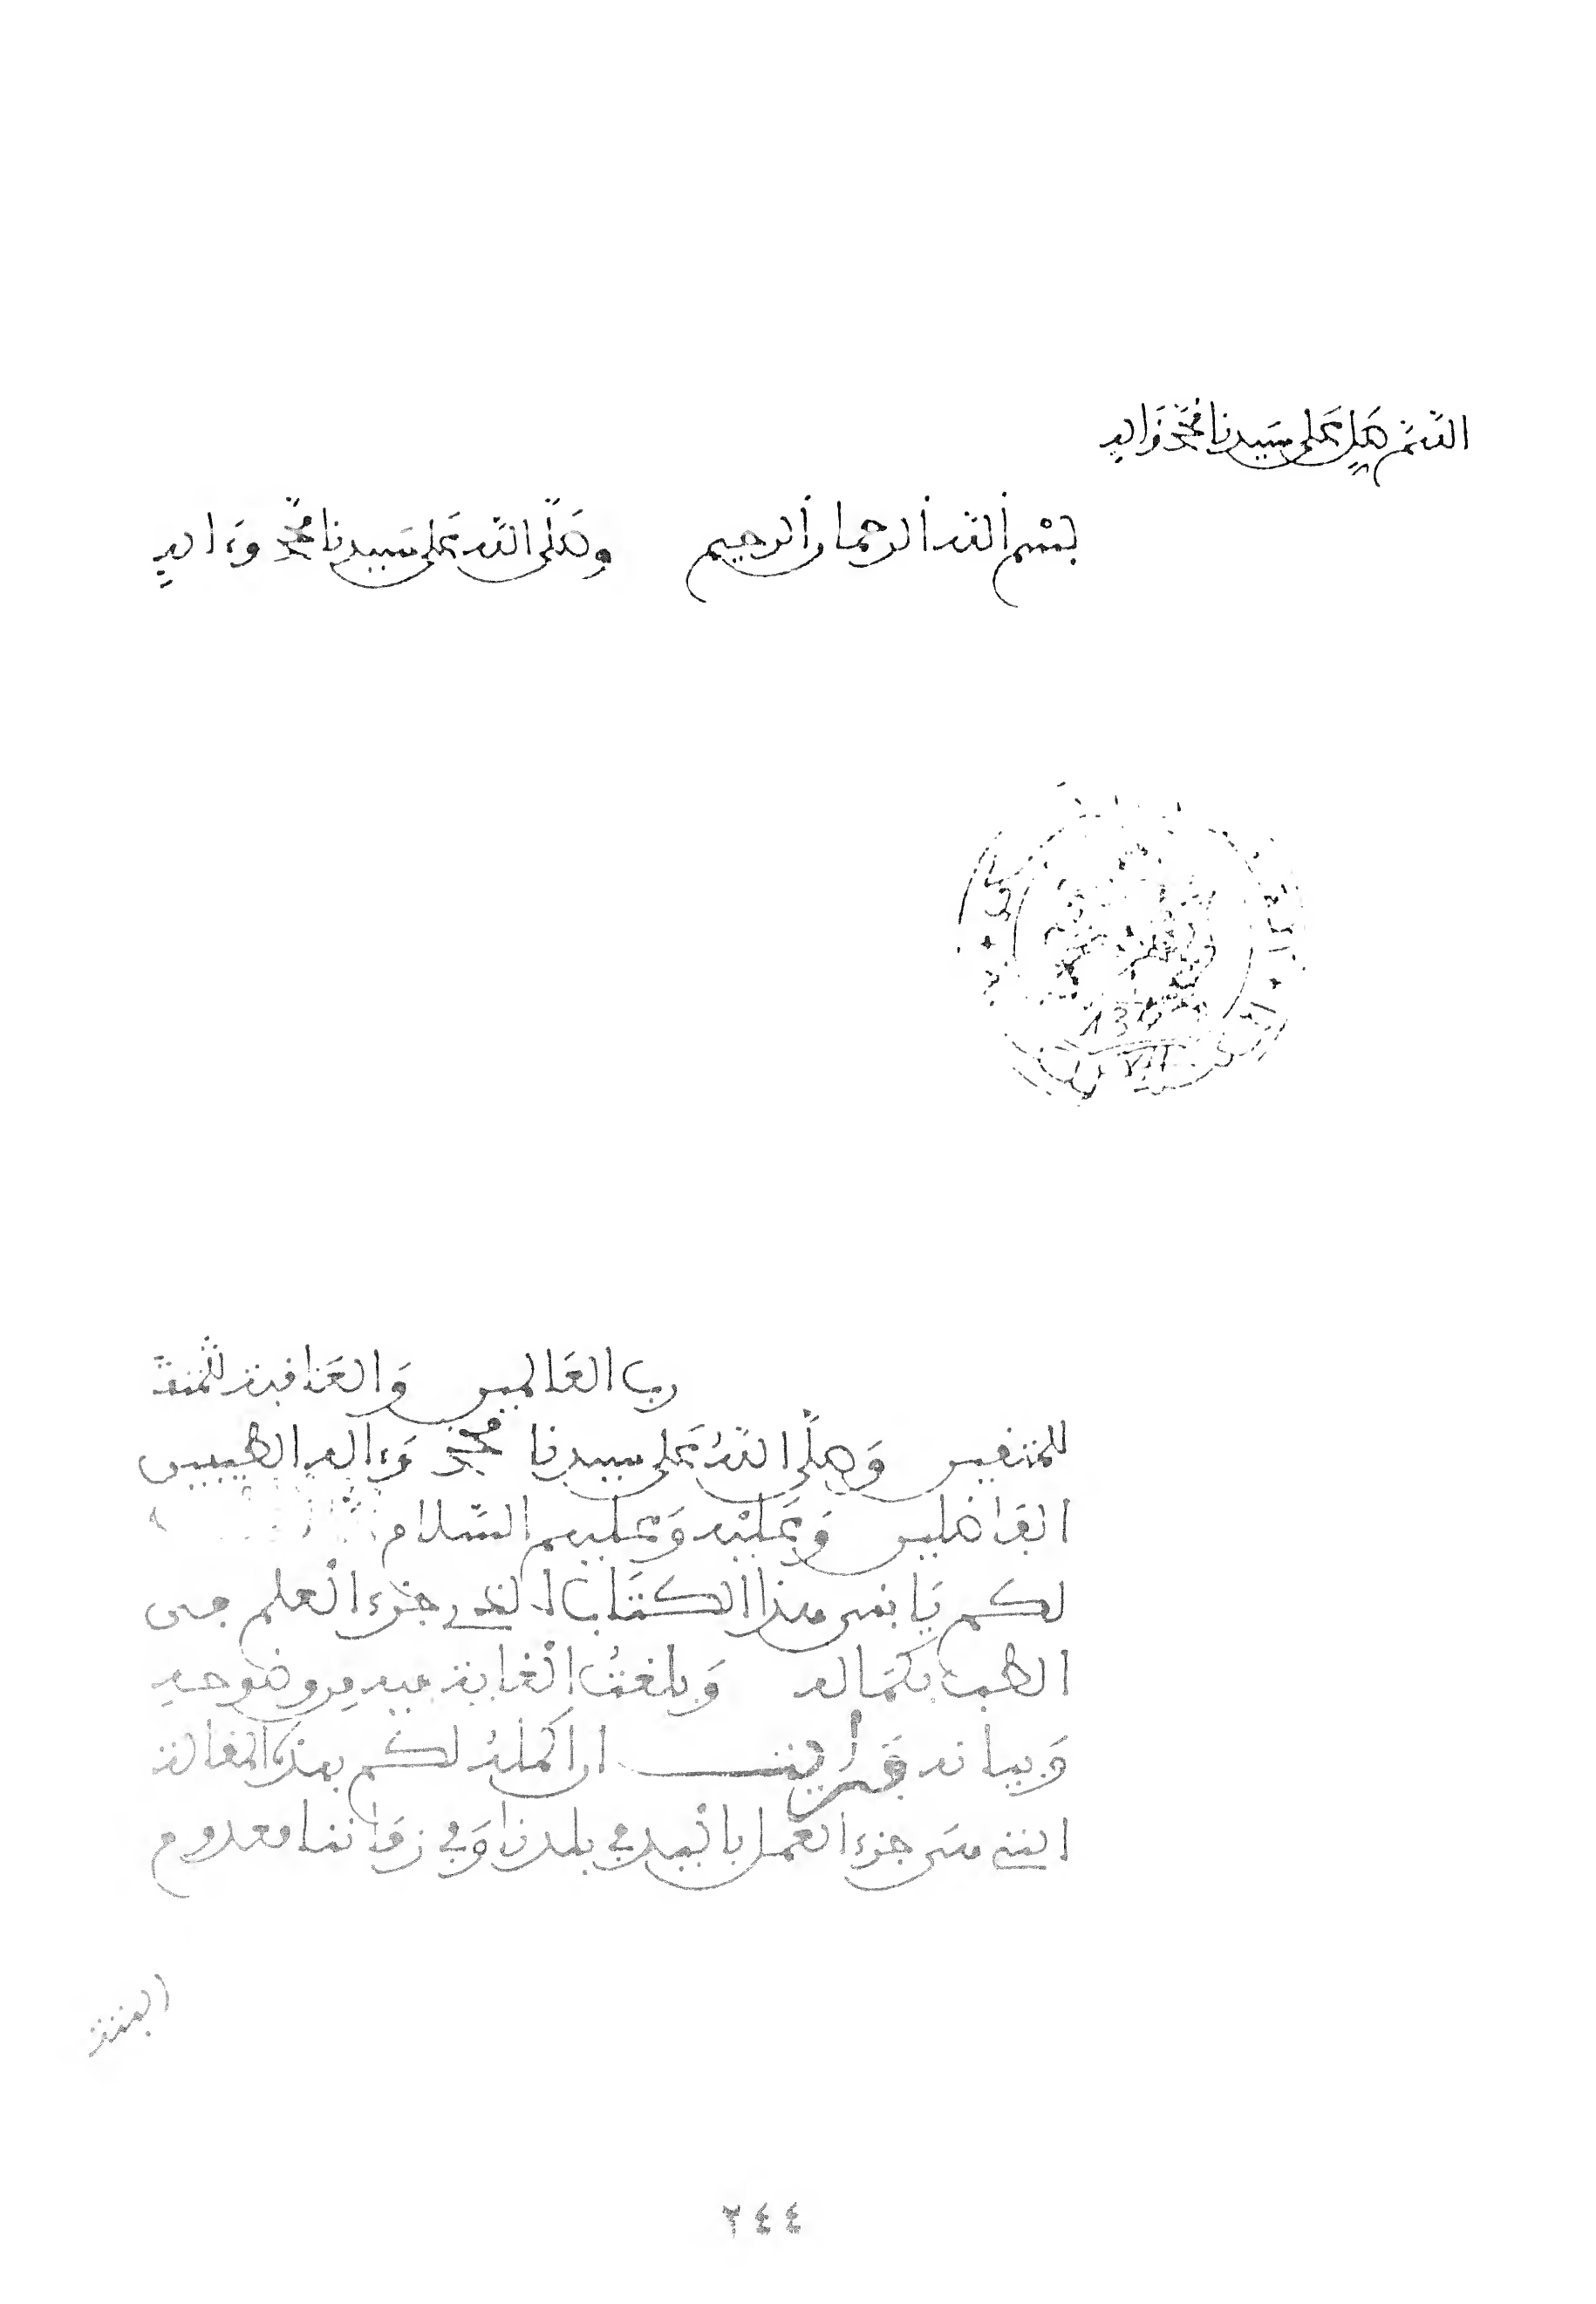 اللهم صل على سيدنا محمد وءاله
بسم الله الرحمان الرحيم وصلى الله على سيدنا محمد وءاله
رب العالمين والعاقبة للمتقين
للمتقين وصلى الله على سيدنا محمد وءاله الطيبين
الفاضلين وعليه وعليهم السلام
لكم يا بنى هذا الكتاب الذي جزء العلم من
الطب بكماله وبلغت الغاية فيه من وضوحه
وبيانه فرأيت ان اكمله لكم بهذه المقالة
التي هى جزء العمل باليد في بلدنا وفي زماننا معدوم
البتة
٢٤٤